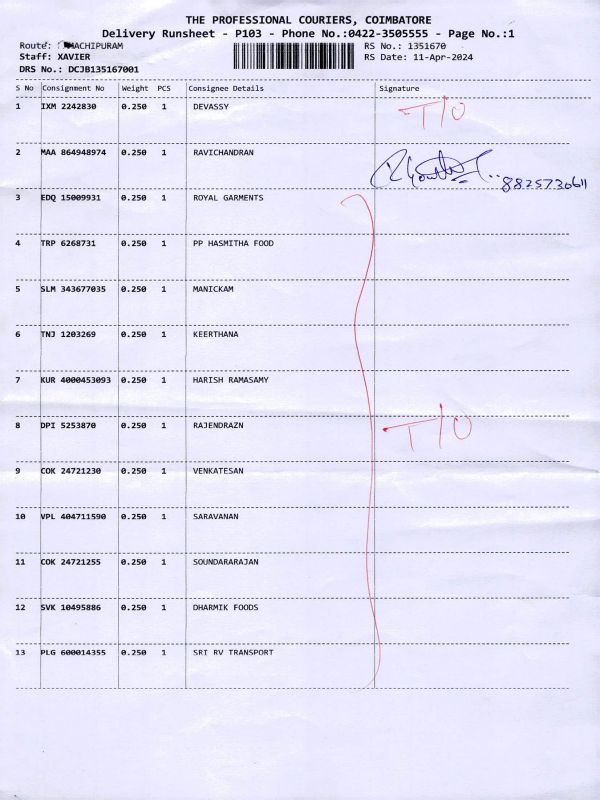 THE PROFESSIONAL COURIERS, COIMBATORE
Delivery Runsheet - P103 - Phone No.:0422-3505555 - Page No.:1
Route: MACHIPURAM RS No.: 1351670
Staff: XAVIER RS Date: 11-Apr-2024
DRS No.: DCJB135167001
S No Consignment No Weight PCS Consignee Details Signature
1 IXM 2242830 0.250 1 DEVASSY T/O
2 MAA 864948974 0.250 1 RAVICHANDRAN 8825730611
3 EDQ 15009931 0.250 1 ROYAL GARMENTS
4 TRP 6268731 0.250 1 PP HASMITHA FOOD
5 SLM 343677035 0.250 1 MANICKAM
6 TNJ 1203269 0.250 1 KEERTHANA
7 KUR 4000453093 0.250 1 HARISH RAMASAMY
8 DPI 5253870 0.250 1 RAJENDRAZN T/O
9 COK 24721230 0.250 1 VENKATESAN
10 VPL 404711590 0.250 1 SARAVANAN
11 COK 24721255 0.250 1 SOUNDARARAJAN
12 SVK 10495886 0.250 1 DHARMIK FOODS
13 PLG 600014355 0.250 1 SRI RV TRANSPORT